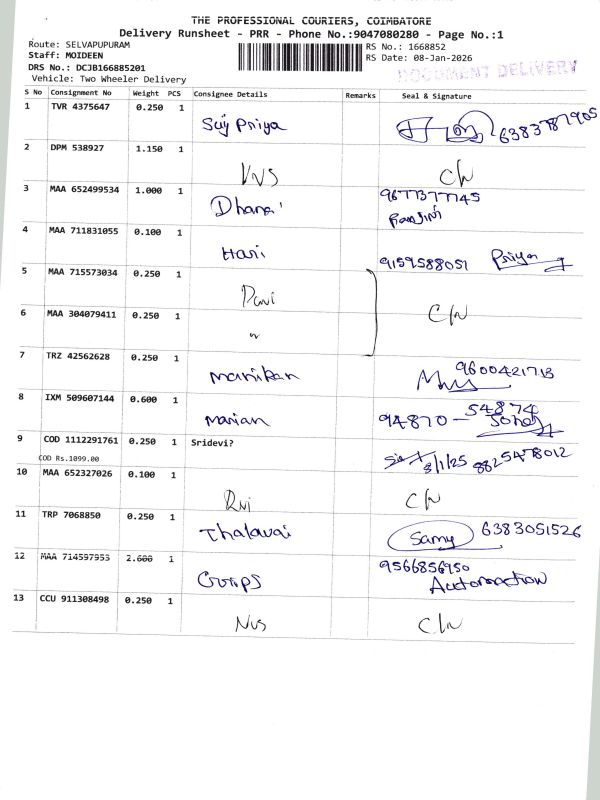 THE PROFESSIONAL COURIERS, COIMBATORE
Delivery Runsheet - PRR - Phone No.:9047080280 - Page No.:1
Route: SELVAPUPURAM
Staff: MOIDEEN
DRS No.: DCJB166885201
Vehicle: Two Wheeler Delivery
RS No.: 1668852
RS Date: 08-Jan-2026
DOCUMENT DELIVERY
S No Consignment No Weight PCS Consignee Details Remarks Seal & Signature
1 TVR 4375647 0.250 1 Priya 6383787905
2 DPM 538927 1.150 1 VNS
3 MAA 652499534 1.000 1 Dhana 9677377745
Ranjini
4 MAA 711831055 0.100 1 Hari 9159588051 Priya
5 MAA 715573034 0.250 1
6 MAA 304079411 0.250 1 "
7 TRZ 42562628 0.250 1 Manikan 9600421713
8 IXM 509607144 0.600 1 Marian 94870 - 54874
9 COD 1112291761 0.250 1 Sridevi? 8/1/25 8825478012
COD Rs.1099.00
10 MAA 652327026 0.100 1
11 TRP 7068850 0.250 1 Thalavai Samy 6383051526
12 MAA 714597953 2.600 1 9566856950
Automaction
13 CCU 911308498 0.250 1 NVS